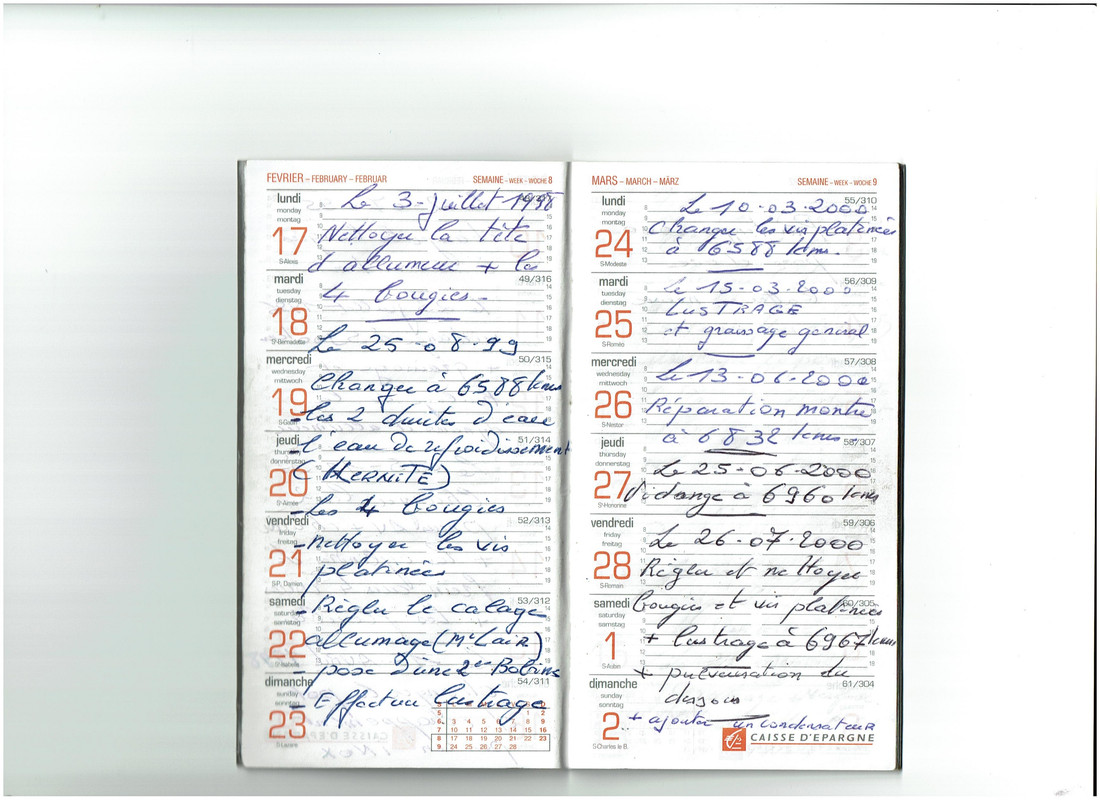 FEVRIER – FEBRUARY – FEBRUAR SEMAINE – WEEK – WOCHE 8
lundi
monday
montag
17
S-Alexis
Le 3-juillet 1998
Nettoyer la tête
d'allumeur + les
mardi 49/316
tuesday
dienstag
18
S-Bernadette
4 bougies-
Le 25-08-99
mercredi 50/315
wednesday
mittwoch
19
Changer à 6588 kms
-les 2 durites d'eau
jeudi 51/314
thursday
donnerstag
20
S-Aimée
-l'eau de refroidissement
(HERNITE)
-les 4 bougies
vendredi 52/313
friday
freitag
21
S-P. Damien
-nettoyer les vis
platinées
samedi 53/312
saturday
samstag
22
S-Isabelle
-Règler le calage
allumage (Mr LAIR)
-pose D'une 2e Bobine
dimanche 54/311
sunday
sonntag
23
S-Lazare
-Effectuer lustrage
5 1 2
6 3 4 5 6 7 8 9
7 10 11 12 13 14 15 16
8 17 18 19 20 21 22 23
9 24 25 26 27 28
MARS – MARCH – MÄRZ SEMAINE – WEEK – WOCHE 9
lundi 55/310
monday
montag
24
S-Modeste
Le 10-03-2000
Changer les vis platinées
à 6588 kms-
mardi 56/309
tuesday
dienstag
25
S-Roméo
Le 15-03-2000
LUSTRAGE
et graissage general
mercredi 57/308
wednesday
mittwoch
26
S-Nestor
Le 13-06-2000
Réparation montre
à 6832 kms
jeudi 58/307
thursday
donnerstag
27
S-Honorine
Le 25-06-2000
Vidange à 6960 kms
vendredi 59/306
friday
freitag
28
S-Romain
Le 26-07-2000
Règler et nettoyer
samedi 60/305
saturday
samstag
1
S-Aubin
bougies et vis platinées
+ lustrage à 6967 kms
+ pulverisation du
dimanche 61/304
sunday
sonntag
2
S-Charles le B.
dessous
+ ajouter un condensateur
CAISSE D'EPARGNE